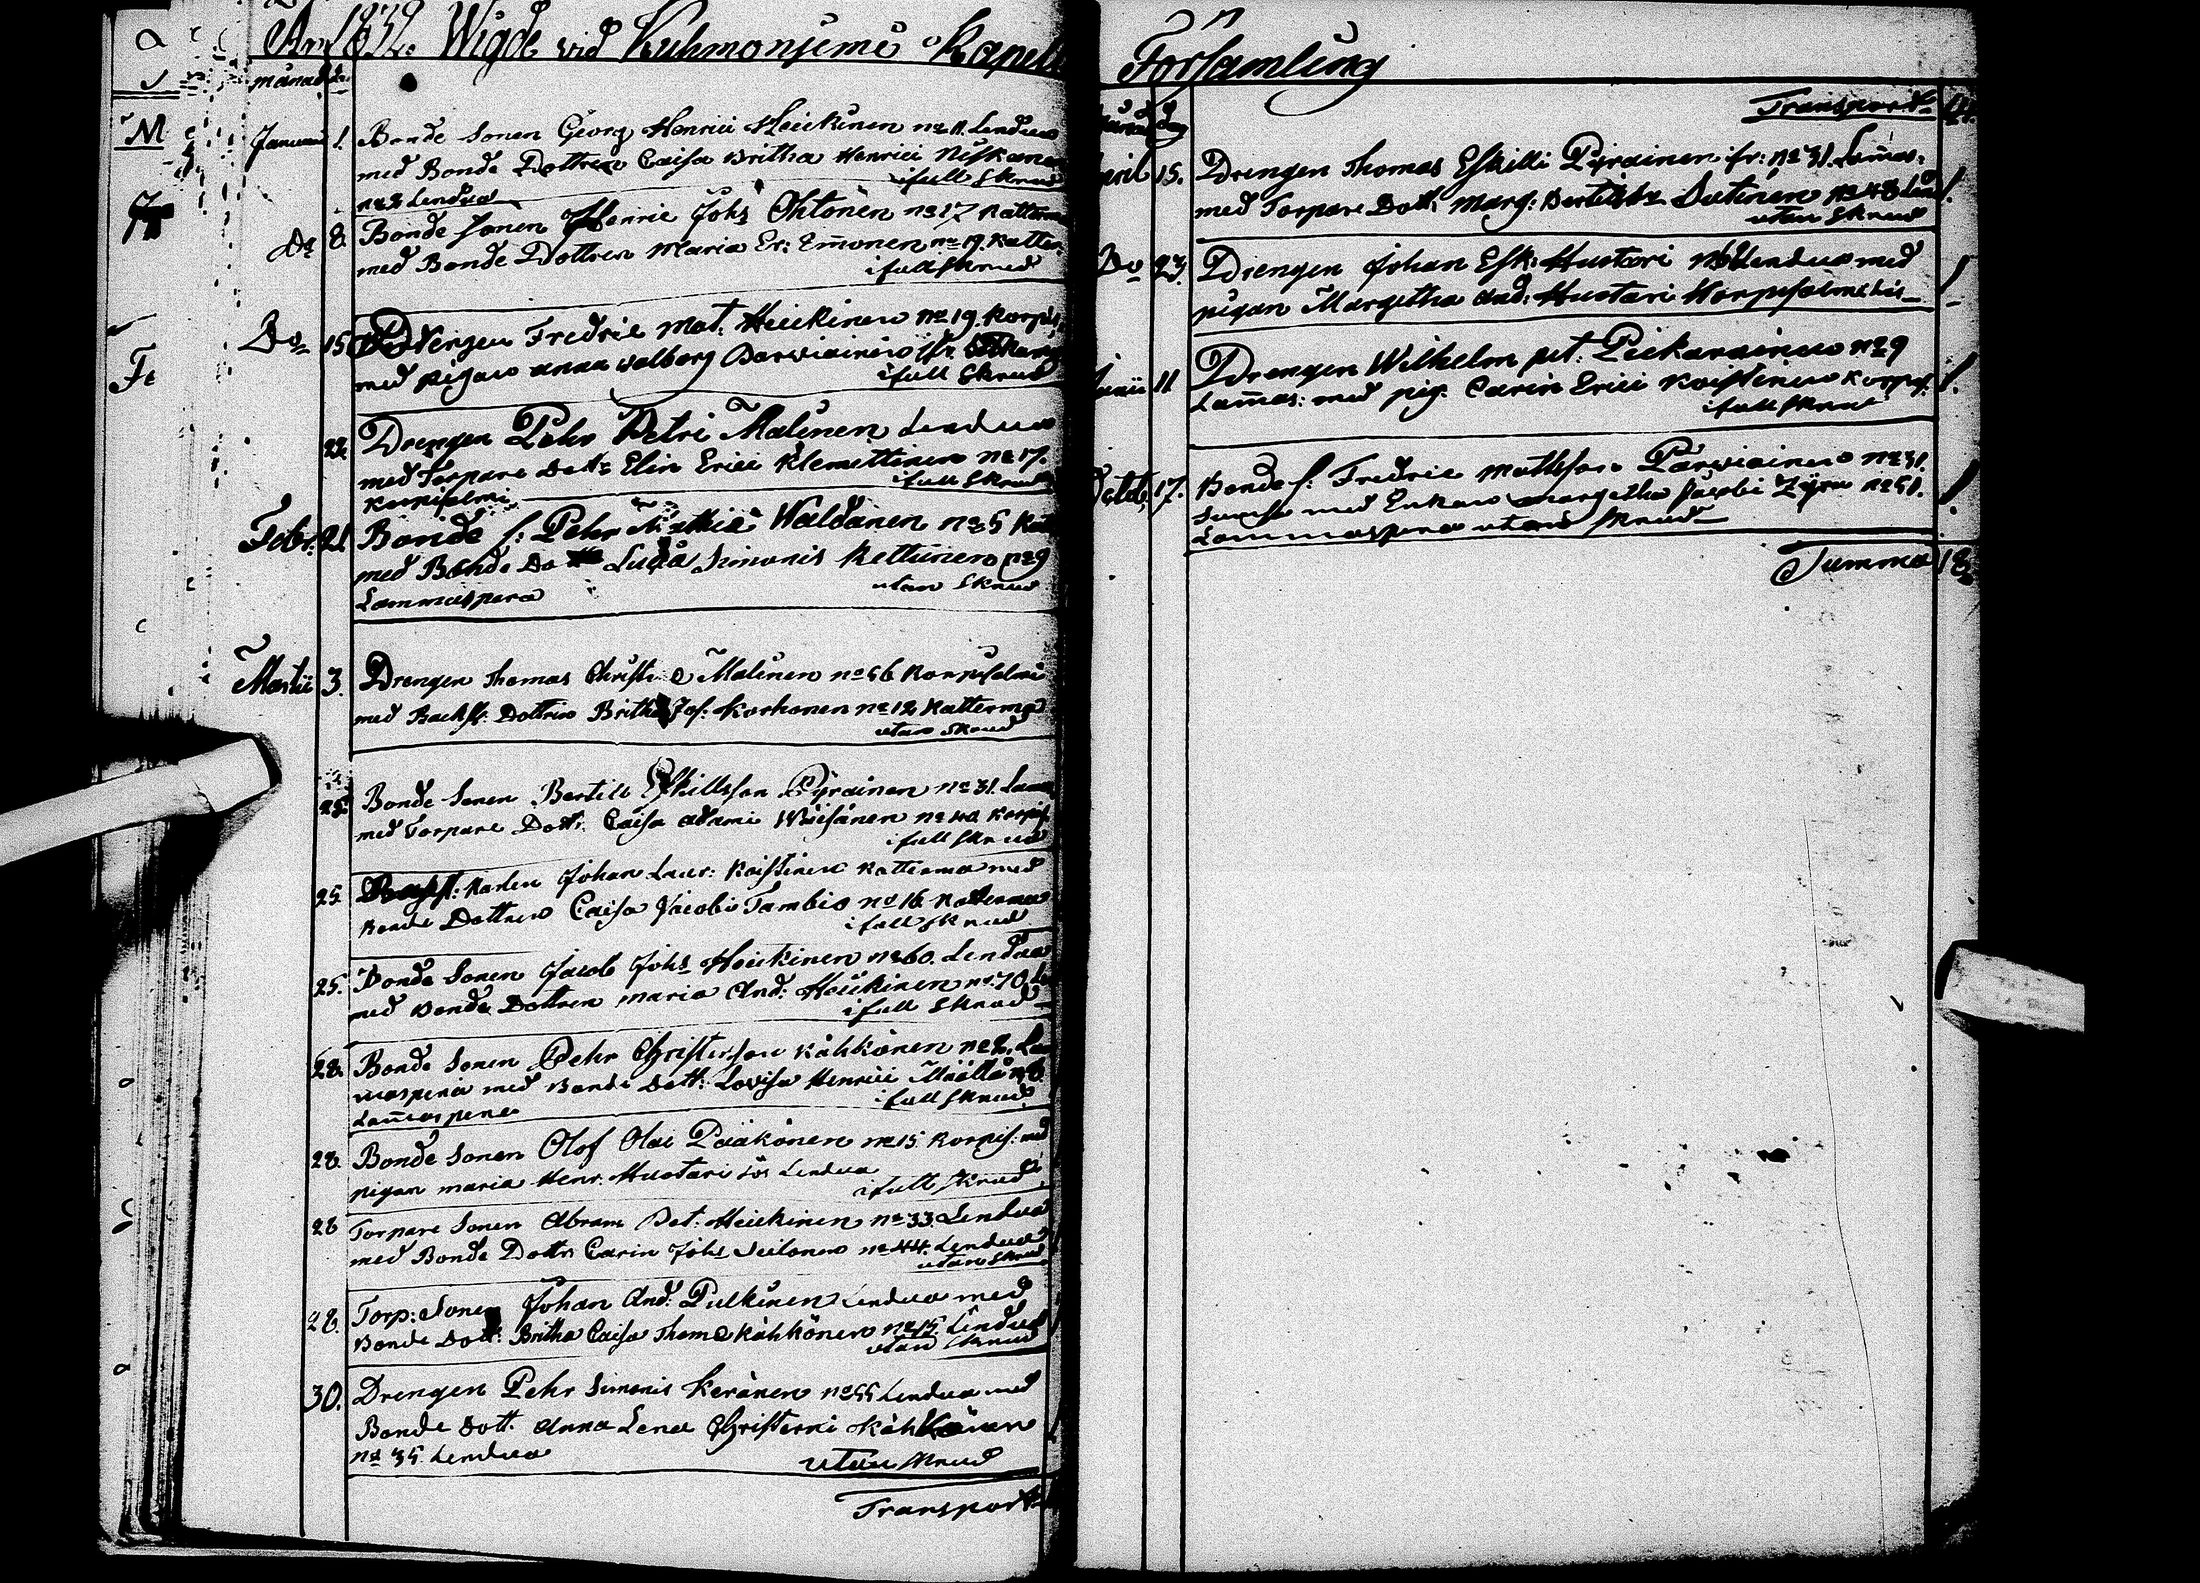 År 1832. Wigde vid Kuhmoniemi Kapell
månad
Januari 1. Bonde Sonen Georg Henrici Heickinen no 11. Lendua
med Bonde Dottren Caisa Britha Henrici Niskanen
no 8 Lendua i full Skrud
Do 8. Bonde Sonen Henric Johs Ohtonen no 27 Katterma
med Bonde Dottren Maria Er: Emonen no 19. Katter:
i full Skrud
Do 15. Drengen Fredric Mat: Heickinen no 19. Korpis:
med pigan Anna Walborg Parviainen
i full Skrud
22. Drengen Pehr Petri Malinen Lendua
med Torpare Dottr Elin Erici Klemettinen no 17.
Korpisalmi i full Skrud
Febr: 21. Bonde s: Pehr Mathiæ Waldanen no 5 Katt
med Bonde Do Simonis Kettunen no 9
Lammaspera utan Skrud
Martii 3. Drengen Thomas Christ: Malinen no 56 Korpisalmi
med Backst: Dottren Britha Jos: Korhonen no 12 Katterma
utan Skrud
25. Bonde Sonen Bertill Eskillsson Pyrainen no 31. Lam
med Torpare Dottr: Caisa Adami Wäisänen no 40 Korpis
i full Skrud
25. Backst: Karlen Johan Laur: Kaistinen Katterma med
Bonde Dottren Caisa Jacobi Tambio no 16 Katterma
i full Skrud
25. Bonde Sonen Jacob Johs Heickinen no 60. Lendua
med Bonde Dottren Maria And: Heickinen no 70 Le
i full Skrud
28. Bonde Sonen Pehr Christersson Kähkönen no 2. Lam
maspera med Bonde Dott: Lovisa Henrici Määttä no 8
Lam̄aspera i full Skrud
28. Bonde Sonen Olof Olai Pääkönen no 15 Korpis: med
pigan Maria Henr: Huotari Lendua
i full Skrud
28 Torpare Sonen Abram Pet: Heickinen no 33. Lendua
med Bonde Dottr: Carin Johs no 44. Lendua
utan Skrud
28. Torp: Sonen Johan And: Pulkinen Lendua med
Bonde Dott: Britha Caisa Thomæ Kähkönen no 15. Lendua
utan Skrud
30. Drengen Pehr Simonis Keränen no 55 Lendua med
Bonde Dott. Anna Lena Christerni Kähkönen
no 35 Lendua utan Skrud
Transport
Församling
månad dag Transport
April 15. Drengen Thomas Eskilli Pyrainen ifr: no 31. Lam̄as:
med Torpare Dott: Marg: Bertils dr Sutinen no 48 Lend 1.
utan Skrud
Do 23. Drengen Johan Esk: Huotari Lendua med 1
pigan Margetha And: Huotari Korpisalmi
Junii 11 Drengen Wilhelm Pet: Pickarainen no 9
Lam̄as: med pig. Carin Erici Kaistinen Korpis. 1.
i full Skrud
Octob 17. Bonde s: Fredric Mathsson Parviainen no 31.
med Enkan Margetha Jacobi no 51. 1.
Lammaspera utan Skrud
Summa 18